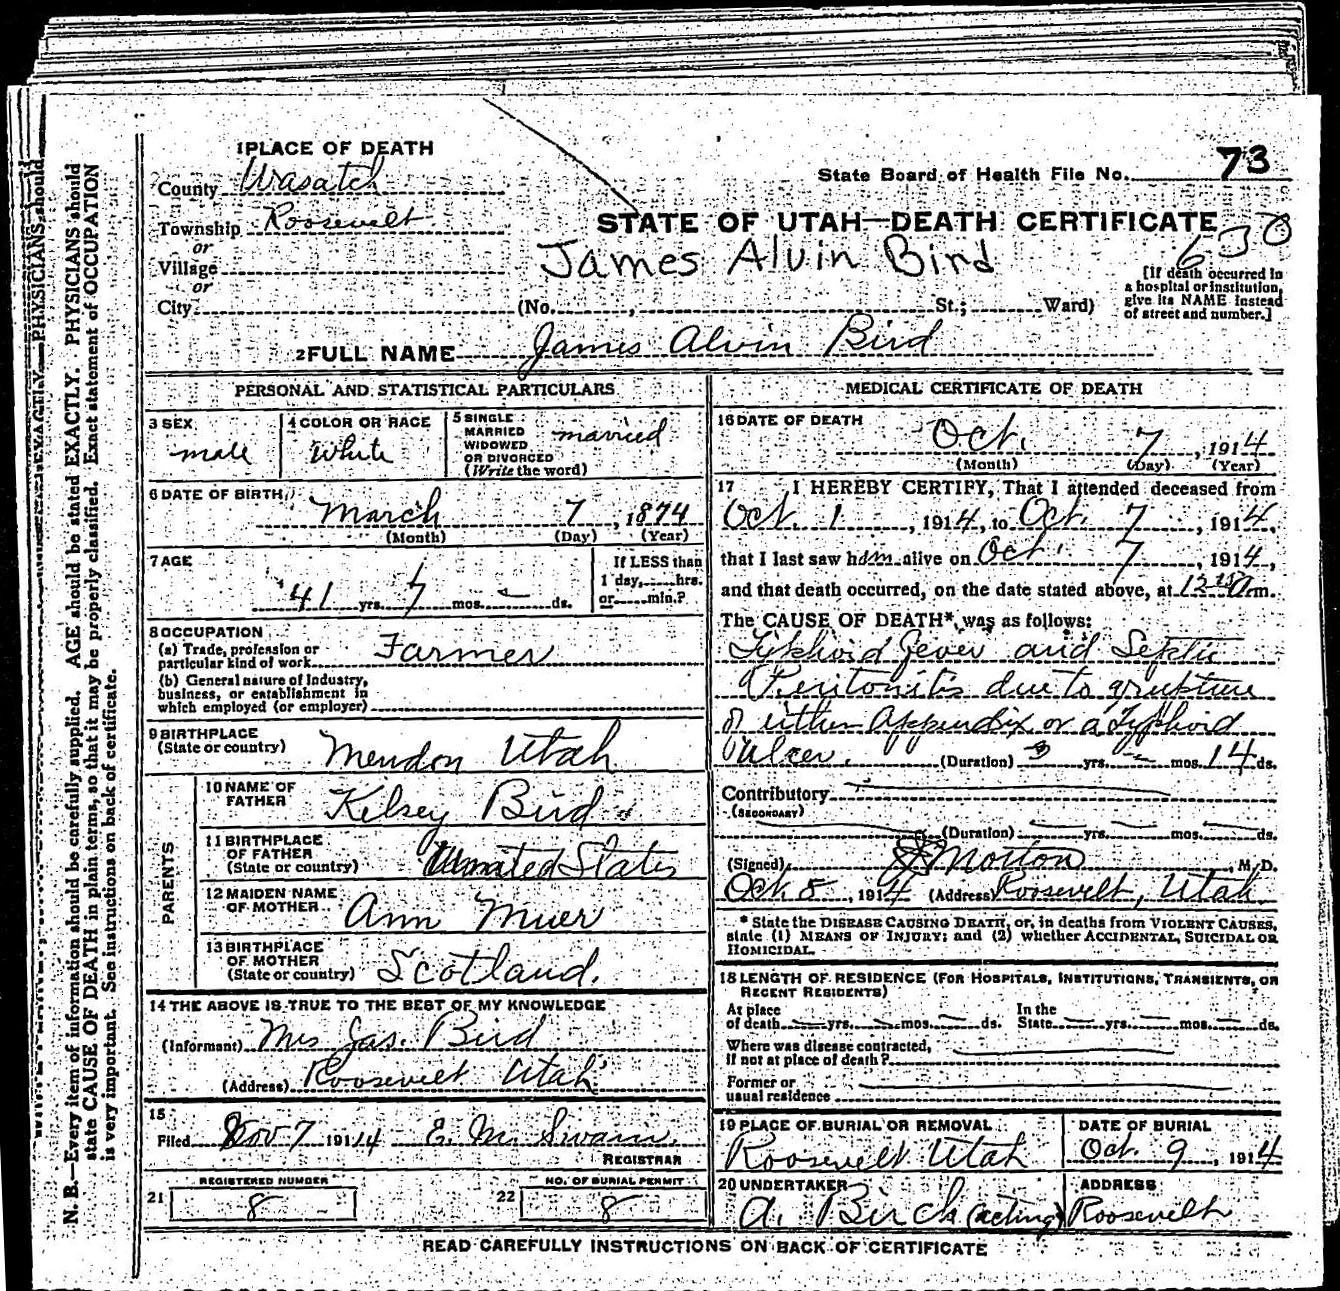 1 PLACE OF DEATH
County Wasatch
Township Roosevelt
or
Village
or
City (No. , St.; Ward)
State Board of Health File No. 73
STATE OF UTAH—DEATH CERTIFICATE
630
James Alvin Bird
[If death occurred in a hospital or institution, give its NAME instead of street and number.]
2 FULL NAME James Alvin Bird
PERSONAL AND STATISTICAL PARTICULARS
3 SEX male
4 COLOR OR RACE White
5 SINGLE MARRIED WIDOWED OR DIVORCED (Write the word) married
6 DATE OF BIRTH March 7, 1874
(Month) (Day) (Year)
7 AGE 41 yrs. 7 mos. — ds.
If LESS than 1 day, hrs. or min.?
8 OCCUPATION
(a) Trade, profession or particular kind of work Farmer
(b) General nature of Industry, business, or establishment in which employed (or employer)
9 BIRTHPLACE (State or country) Mendon Utah
PARENTS
10 NAME OF FATHER Kelsey Bird
11 BIRTHPLACE OF FATHER (State or country) United States
12 MAIDEN NAME OF MOTHER Ann Muer
13 BIRTHPLACE OF MOTHER (State or country) Scotland.
14 THE ABOVE IS TRUE TO THE BEST OF MY KNOWLEDGE
(Informant) Mrs Jas. Bird
(Address) Roosevelt Utah
15
Filed Nov 7 1914 E. M. Swain.
REGISTRAR
21 REGISTERED NUMBER 8
22 NO. OF BURIAL PERMIT 8
MEDICAL CERTIFICATE OF DEATH
16 DATE OF DEATH Oct. 7, 1914
(Month) (Day) (Year)
17 I HEREBY CERTIFY, That I attended deceased from
Oct. 1, 1914, to Oct. 7, 1914,
that I last saw him alive on Oct. 7, 1914,
and that death occurred, on the date stated above, at m.
The CAUSE OF DEATH* was as follows:
Typhoid fever and Septic
Peritonitis due to rupture
of either Appendix or a Typhoid
Ulcer. (Duration) yrs. — mos. 14 ds.
Contributory
(SECONDARY)
(Duration) — yrs. — mos. — ds.
(Signed) Morton, M.D.
Oct 8, 1914 (Address) Roosevelt, Utah.
* State the DISEASE CAUSING DEATH, or, in deaths from VIOLENT CAUSES, state (1) MEANS OF INJURY; and (2) whether ACCIDENTAL, SUICIDAL OR HOMICIDAL.
18 LENGTH OF RESIDENCE (FOR HOSPITALS, INSTITUTIONS, TRANSIENTS, OR RECENT RESIDENTS)
At place of death — yrs. — mos. — ds. In the State — yrs. — mos. — ds.
Where was disease contracted, if not at place of death?
Former or usual residence
19 PLACE OF BURIAL OR REMOVAL Roosevelt Utah
DATE OF BURIAL Oct. 9, 1914
20 UNDERTAKER A. Birch (acting)
ADDRESS Roosevelt
READ CAREFULLY INSTRUCTIONS ON BACK OF CERTIFICATE
N. B.—Every item of information should be carefully supplied. AGE should be stated EXACTLY. PHYSICIANS should
state CAUSE OF DEATH in plain terms, so that it may be properly classified. Exact statement of OCCUPATION
is very important. See instructions on back of certificate.